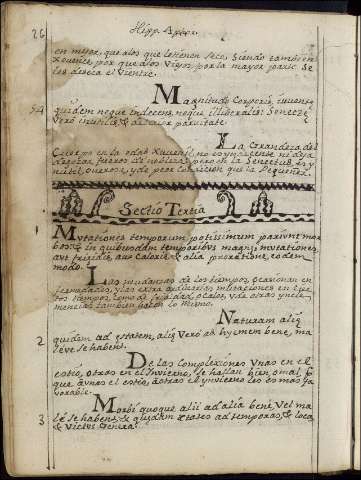 26
Hipp. Aphor.
en mejor, que los que le tienen seco, siendo tambien
xouenes, por que a los Viejos por la mayor parte se
les deseca el Vientre.
54
Magnitudo Corporis, iuventu
quidem neque indecens, neque illiberalis: Senectæ
Verò inutilis, & deterior paruitate.
La Grandeza del
Cuerpo en la edad Xuuenil, no es
de nobleza, pero en la Senectud, es
inutil, y de peor condicion que la Pequeñez.
Sectio Tertia
1
Mutationes temporum potissimum pariunt mor
bos: & in quibusdam temporibus magnæ mutationes,
aut frigidis, aut Caloris: & alia pro ratione, eodem
modo.
Las mudanzas de los tiempos, ocasionan en
fermedades, y las extra mutaciones en cier
tos tiempos, como de frialdad, o calor, y de otras yncle
mencias tambien hacen lo mismo.
2
Naturam aliæ
quidem ad æstatem, aliæ Verò ad hyemem bene, ma
leve se habent.
De las Complexiones Unas en el
estio, otras en el Invierno, se hallan bien, o mal, &
que a unos el estio, a otros el ynvierno les es mas fa
vorable.
3
Morbi quoque alii ad alia bene, Vel ma
le se habent, & quædam ætates ad temporas, & loca,
& Victus Genera.